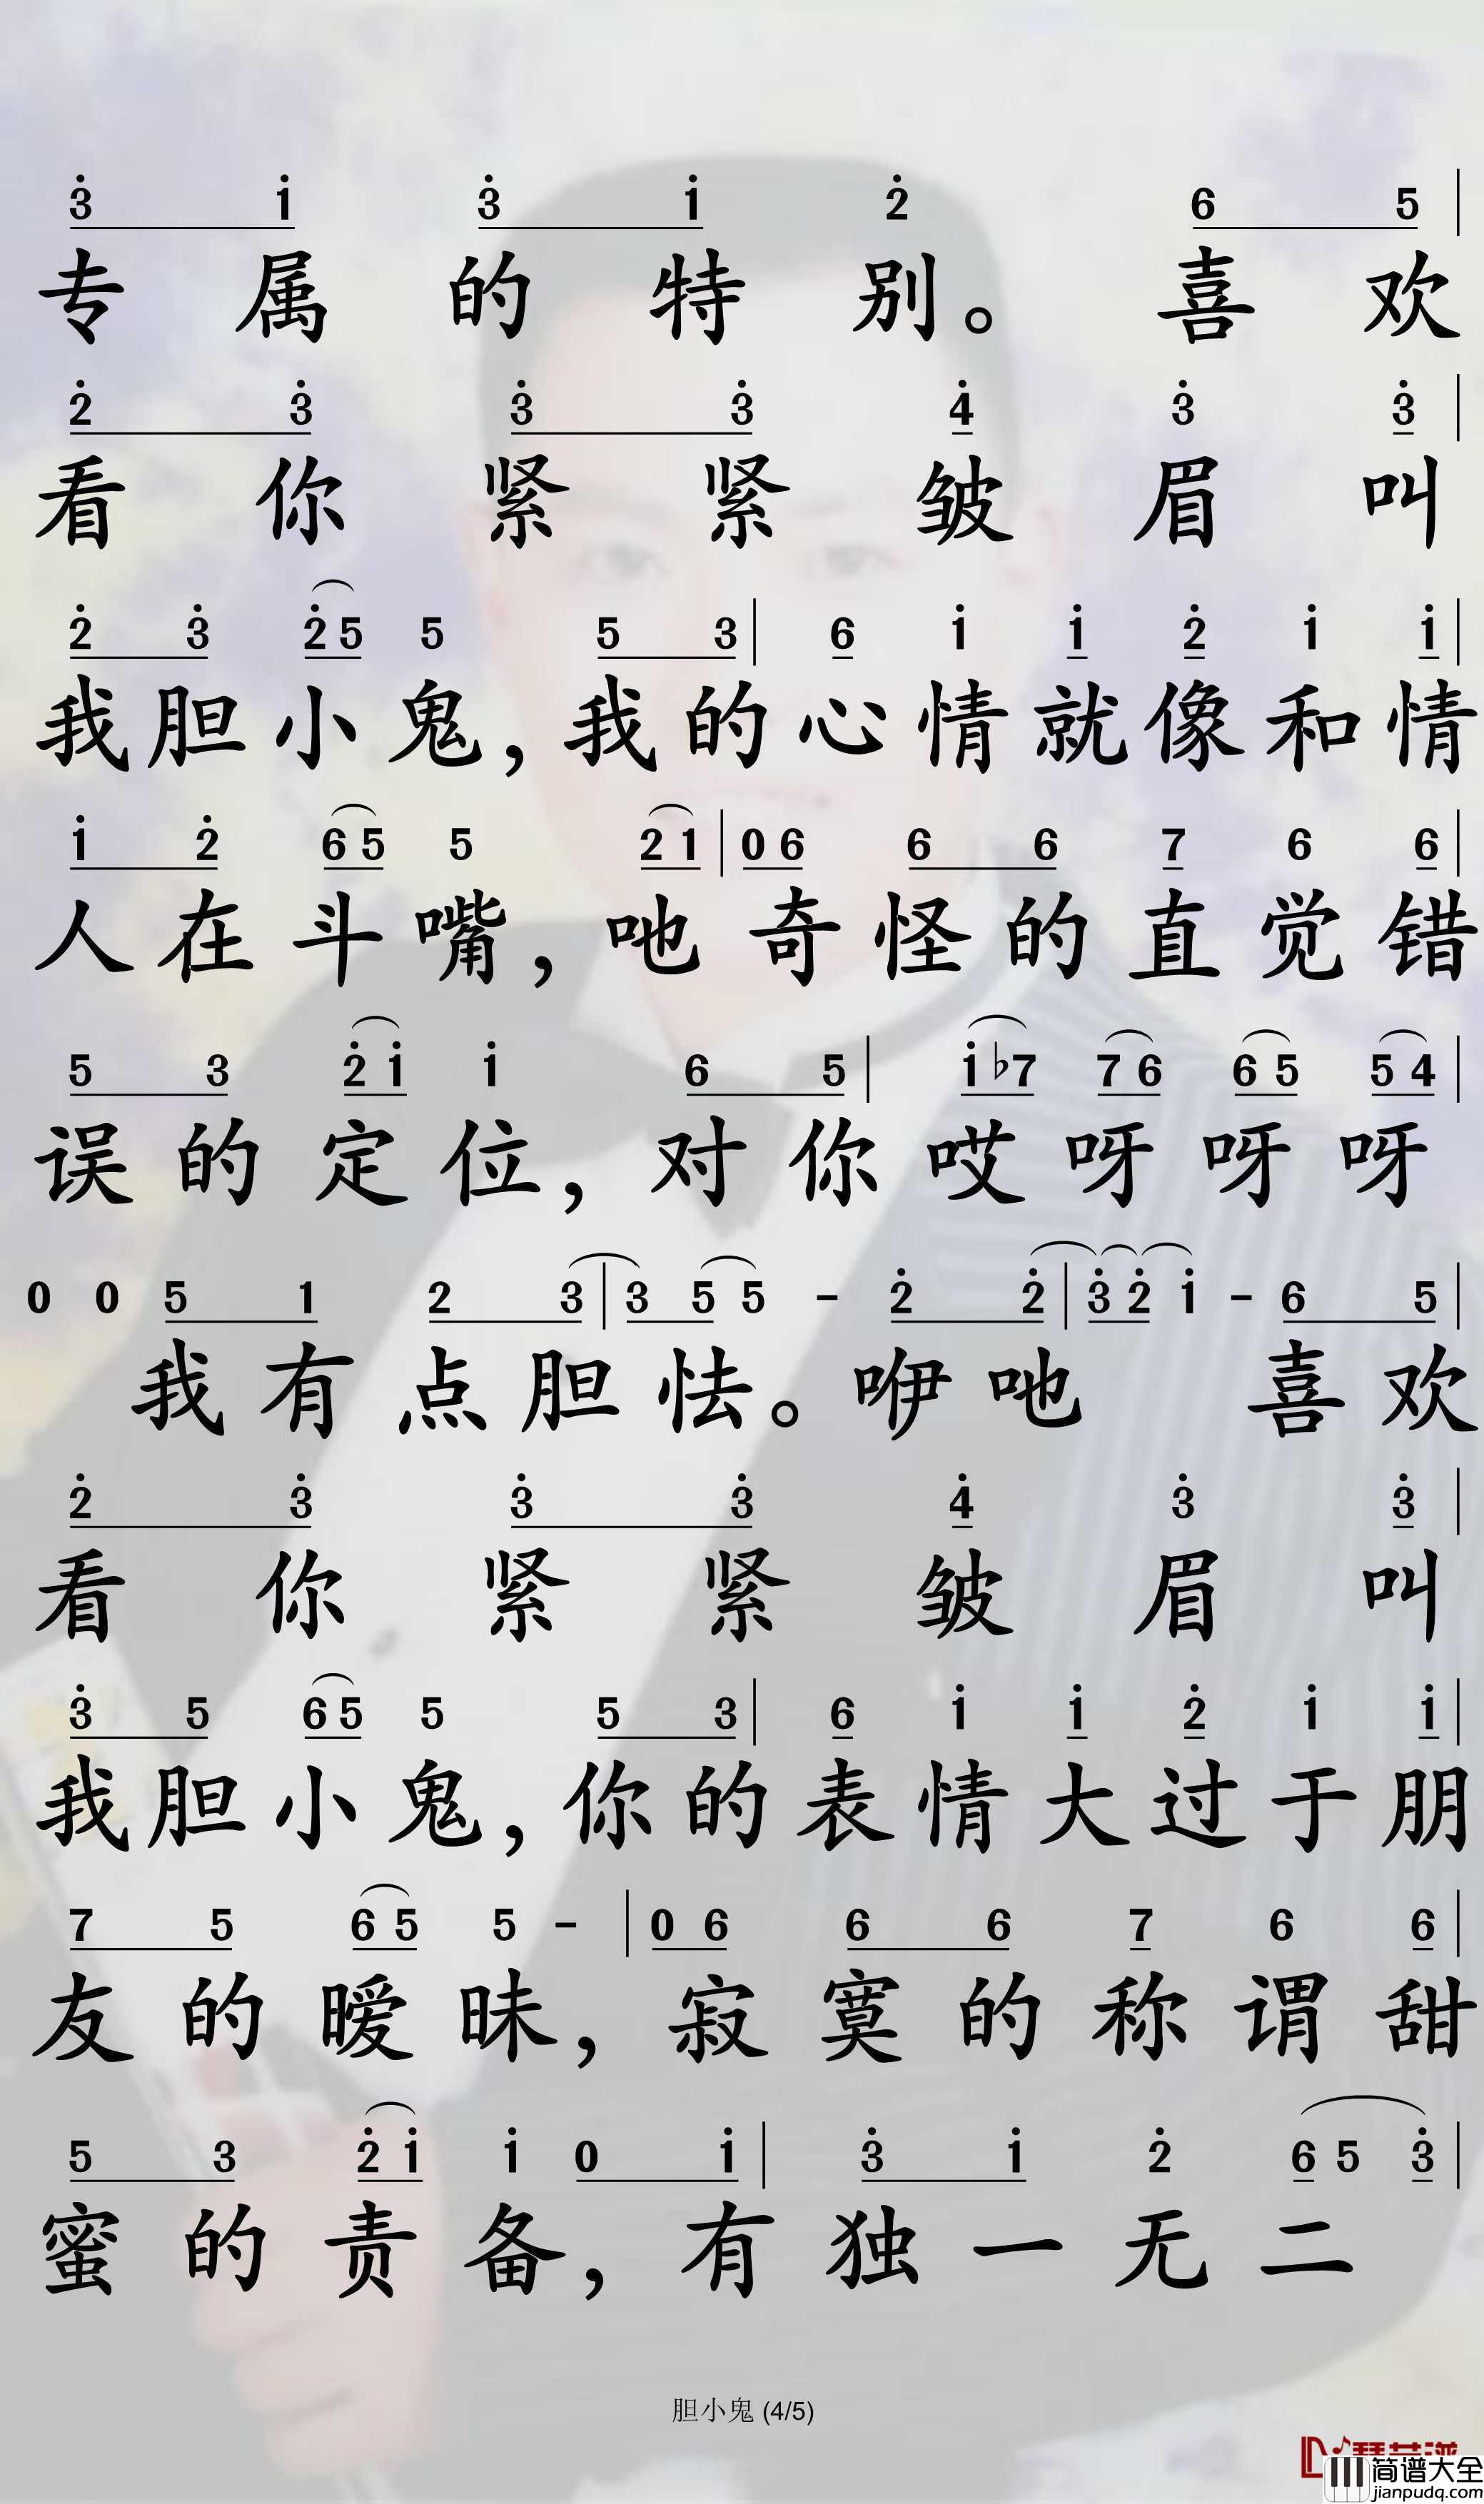 3̇ 1̇ 3̇ 1̇ 2̇ 6 5 |
专 属 的 特 别。 喜 欢
2̇ 3̇ 3̇ 3̇ 4̇ 3̇ 3̇ |
看 你 紧 紧 皱 眉 叫
2̇ 3̇ 2̇ 5 5 5 3 | 6 1̇ 1̇ 2̇ 1̇ 1̇ |
我 胆 小 鬼, 我 的 心 情 就 像 和 情
1̇ 2̇ 6 5 5 2 1 | 0 6 6 6 7 6 6 |
人 在 斗 嘴, 吔 奇 怪 的 直 觉 错
5 3 2̇ 1̇ 1̇ 6 5 | 1̇ ♭7 7 6 6 5 5 4 |
误 的 定 位, 对 你 哎 呀 呀 呀
0 0 5 1 2 3 | 3 5 5 - 2̇ 2̇ | 3̇ 2̇ 1̇ - 6 5 |
我 有 点 胆 怯。 咿 吔 喜 欢
2̇ 3̇ 3̇ 3̇ 4̇ 3̇ 3̇ |
看 你 紧 紧 皱 眉 叫
3̇ 5 6 5 5 5 3 | 6 1̇ 1̇ 2̇ 1̇ 1̇ |
我 胆 小 鬼, 你 的 表 情 大 过 于 朋
7 5 6 5 5 - | 0 6 6 6 7 6 6 |
友 的 暧 昧, 寂 寞 的 称 谓 甜
5 3 2̇ 1̇ 1̇ 0 1̇ | 3̇ 1̇ 2̇ 6 5 3̇ |
蜜 的 责 备, 有 独 一 无 二
胆小鬼 (4/5)
简谱大全
jianpudq.com